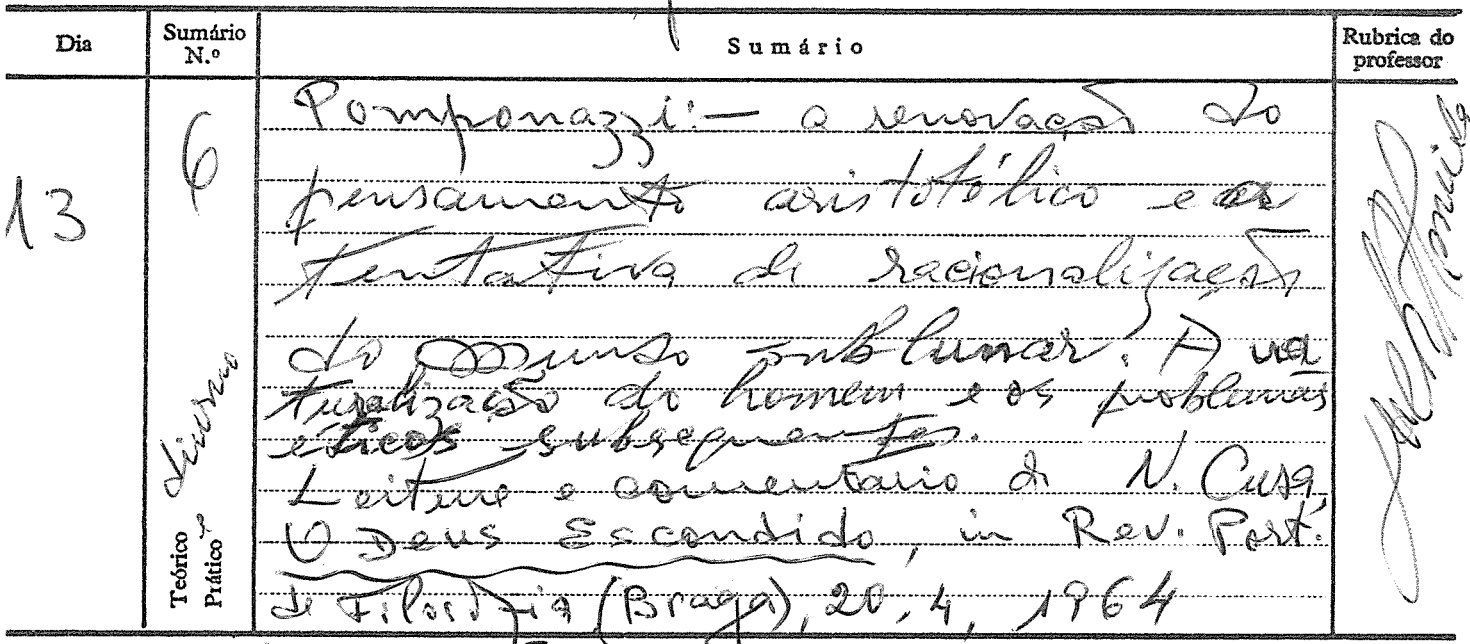 Dia
Sumário N.º
Sumário
Rubrica do professor
13
6
diurno
Teórico e Prático
Pomponazzi: — a renovação do
pensamento aristotélico e a
tentativa de racionalização
do mundo sublunar. A na
turalização do homem e os problemas
éticos subsequentes.
Leitura e comentário de N. Cusa,
O Deus Escondido, in Rev. Port.
de Filosofia (Braga), 20, 4, 1964